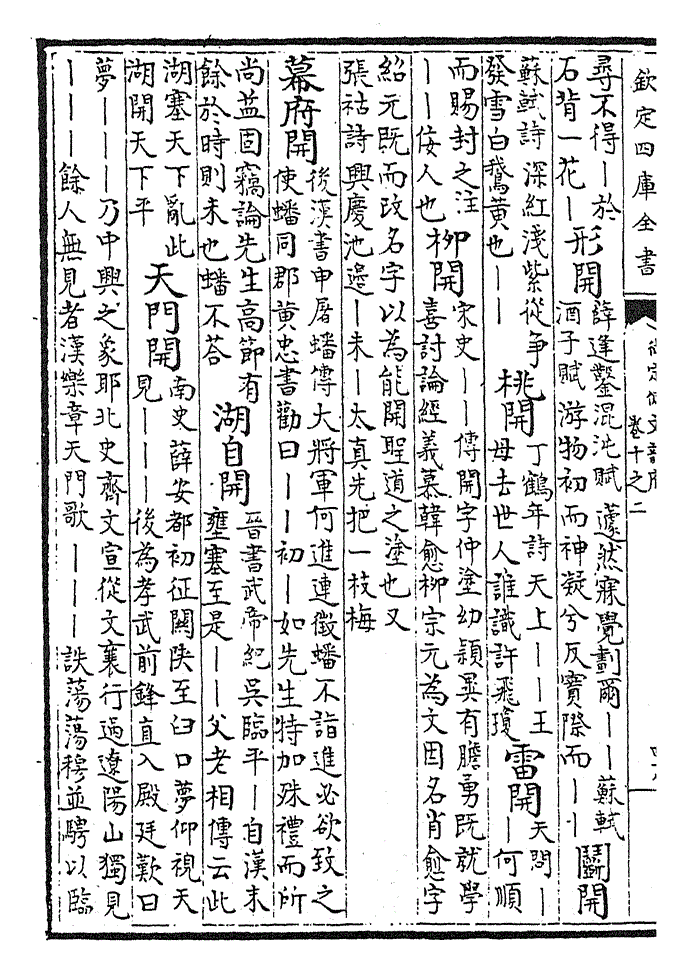 欽定四庫全書
卷十之二
尋不得丨於
石背一花丨
形開
薛逢鑿混沌賦蘧然寐覺劃爾丨丨蘇軾
酒子賦游物初而神凝兮反實際而丨丨
鬭開
蘇軾詩深紅淺紫從爭
發雪白鵞黃也丨丨
桃開
丁鶴年詩天上丨丨王
母去世人誰識許飛瓊
雷開
天問丨
丨何順
而賜封之注
丨丨佞人也
柳開
宋史丨丨傳開字仲塗幼穎異有膽勇既就學
喜討論經義慕韓愈柳宗元為文因名肖愈字
紹元既而改名字以為能開聖道之塗也又
張祜詩興慶池邊丨未丨太真先把一枝梅
幕府開
後漢書申屠蟠傳大將軍何進連徵蟠不詣進必欲致之
使蟠同郡黃忠書勸曰丨丨初丨如先生特加殊禮而所
尚益固竊論先生高節有
餘於時則未也蟠不荅
湖自開
晉書武帝紀吳臨平丨自漢末
壅塞至是丨丨父老相傳云此
湖塞天下亂此
湖開天下平
天門開
南史薛安都初征關陝至臼口夢仰視天
見丨丨丨後為孝武前鋒直入殿廷歎曰
夢丨丨丨乃中興之象耶北史齊文宣從文襄行過遼陽山獨見
丨丨丨餘人無見者漢樂章天門歌丨丨丨詄蕩蕩穆並騁以臨